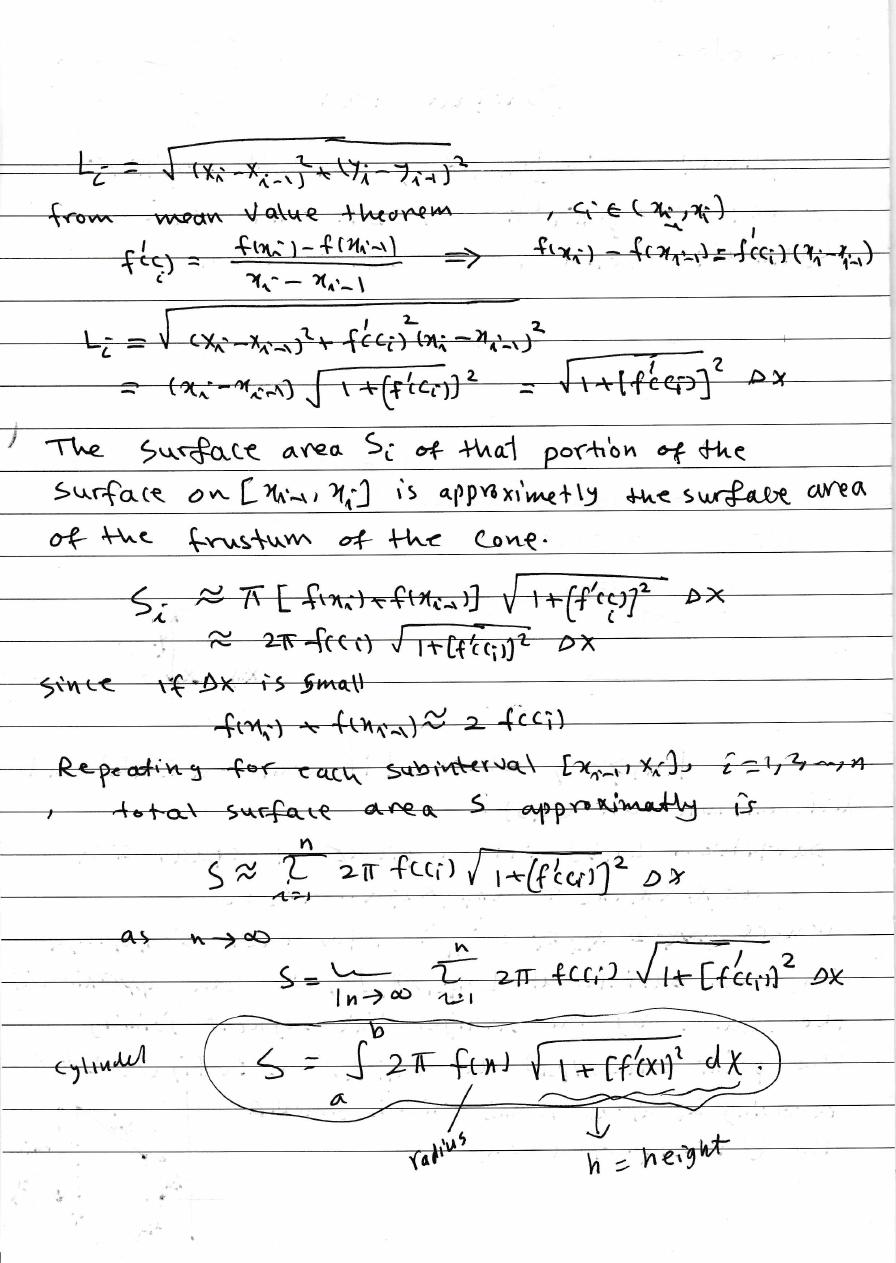 L_i = √((x_i - x_{i-1})² + (y_i - y_{i-1})²
from mean value theorem , c_i ∈ (x_{i-1}, x_i)
f'(c_i) = (f(x_i) - f(x_{i-1})) / (x_i - x_{i-1}) ⟹ f(x_i) - f(x_{i-1}) = f'(c_i)(x_i - x_{i-1})
L_i = √((x_i - x_{i-1})² + f'(c_i)² (x_i - x_{i-1})²
= (x_i - x_{i-1}) √(1 + [f'(c_i)]² = √(1 + [f'(c_i)]² Δx
The surface area S_i of that portion of the
surface on [x_{i-1}, x_i] is approximetly the surface area
of the frustum of the cone.
S_i ≈ π [f(x_i) + f(x_{i-1})] √(1 + [f'(c_i)]² Δx
≈ 2π f(c_i) √(1 + [f'(c_i)]² Δx
since if Δx is small
f(x_i) + f(x_{i-1}) ≈ 2 f(c_i)
Repeating for each subinterval [x_{i-1}, x_i], i = 1, 2, ..., n
, total surface area S approximatly is
S ≈ Σ_{i=1}^{n} 2π f(c_i) √(1 + [f'(c_i)]² Δx
as n → ∞
S = lim_{n→∞} Σ_{i=1}^{n} 2π f(c_i) √(1 + [f'(c_i)]² Δx
cylinder S = ∫_a^b 2π f(x) √(1 + [f'(x)]² dx.
radius
h = height